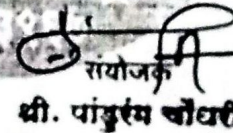 संयोजक
श्री. पांडुरंग चौधरी